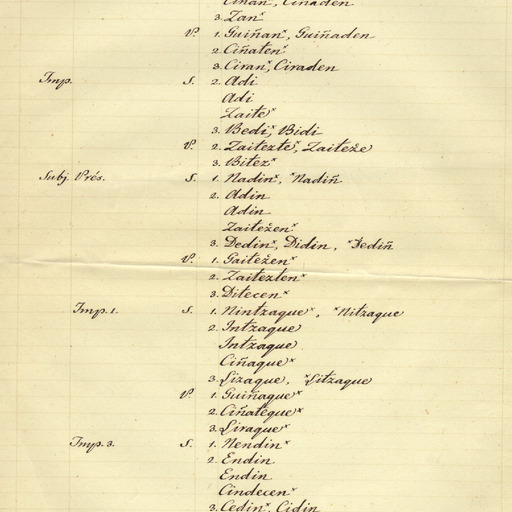 Ciñan, Ciñaden
3. Zanˣ
P. 1. Guiñanˣ, Guiñaden
2. Ciñatenˣ
3. Ciranˣ, Ciraden
Imp. S. 2. Adi
Adi
Zaiteˣ
3. Bediˣ, Bidi
P. 2. Zaitezteˣ, Zaiteże
3. Bitezˣ
Subj. Prés. S. 1. Nadinˣ, ˣNadiñ
2. Adin
Adin
Zaiteżenˣ
3. Dedinˣ, Didin, ˣDediñ
P. 1. Gaiteżenˣ
2. Zaiteztenˣ
3. Ditecenˣ
Imp. 1. S. 1. Nintzaqueˣ, ˣNitzaque
2. Intzaque
Intzaque
Ciñaqueˣ
3. Lizaque, ˣLitzaque
P. 1. Guiñaqueˣ
2. Ciñatequeˣ
3. Liraqueˣ
Imp. 3. S. 1. Nendinˣ
2. Endin
Endin
Cindecenˣ
3. Cedinˣ, Cidin